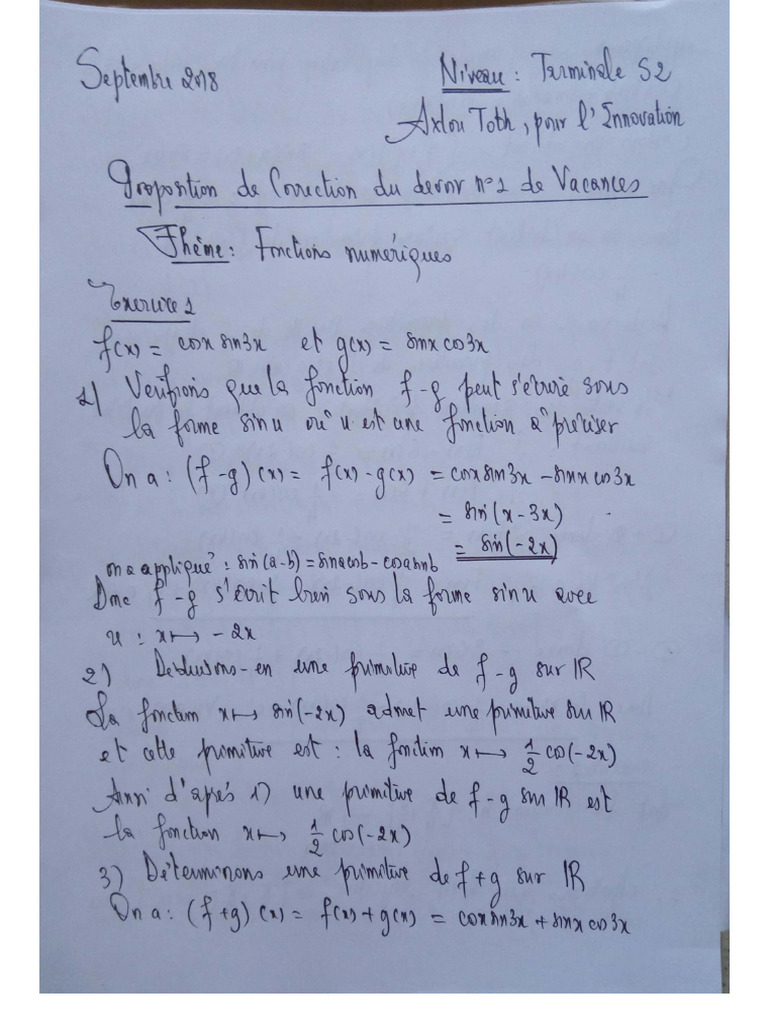 Septembre 2018
Niveau : Terminale S2
Axlou Toth, pour l'Innovation
Proposition de Correction du devoir n°1 de Vacances
Thème : Fonctions numériques
Exercice 1
f(x) = cosx sin3x et g(x) = sinx cos3x
1) Verifions que la fonction f-g peut s'écrire sous
la forme sinu où u est une fonction à préciser
On a : (f-g)(x) = f(x) - g(x) = cosx sin3x - sinx cos3x
= sin(x-3x)
= sin(-2x)
on a appliqué : sin(a-b) = sinacosb - cosasinb
Donc f-g s'écrit bien sous la forme sinu avec
u : x ↦ -2x
2) Déduisons-en une primitive de f-g sur IR
La fonction x ↦ sin(-2x) admet une primitive sur IR
et cette primitive est : la fonction x ↦ 1/2 cos(-2x)
Ainsi d'après 1) une primitive de f-g sur IR est
la fonction x ↦ 1/2 cos(-2x)
3) Déterminons une primitive de f+g sur IR
On a : (f+g)(x) = f(x) + g(x) = cosx sin3x + sinx cos3x